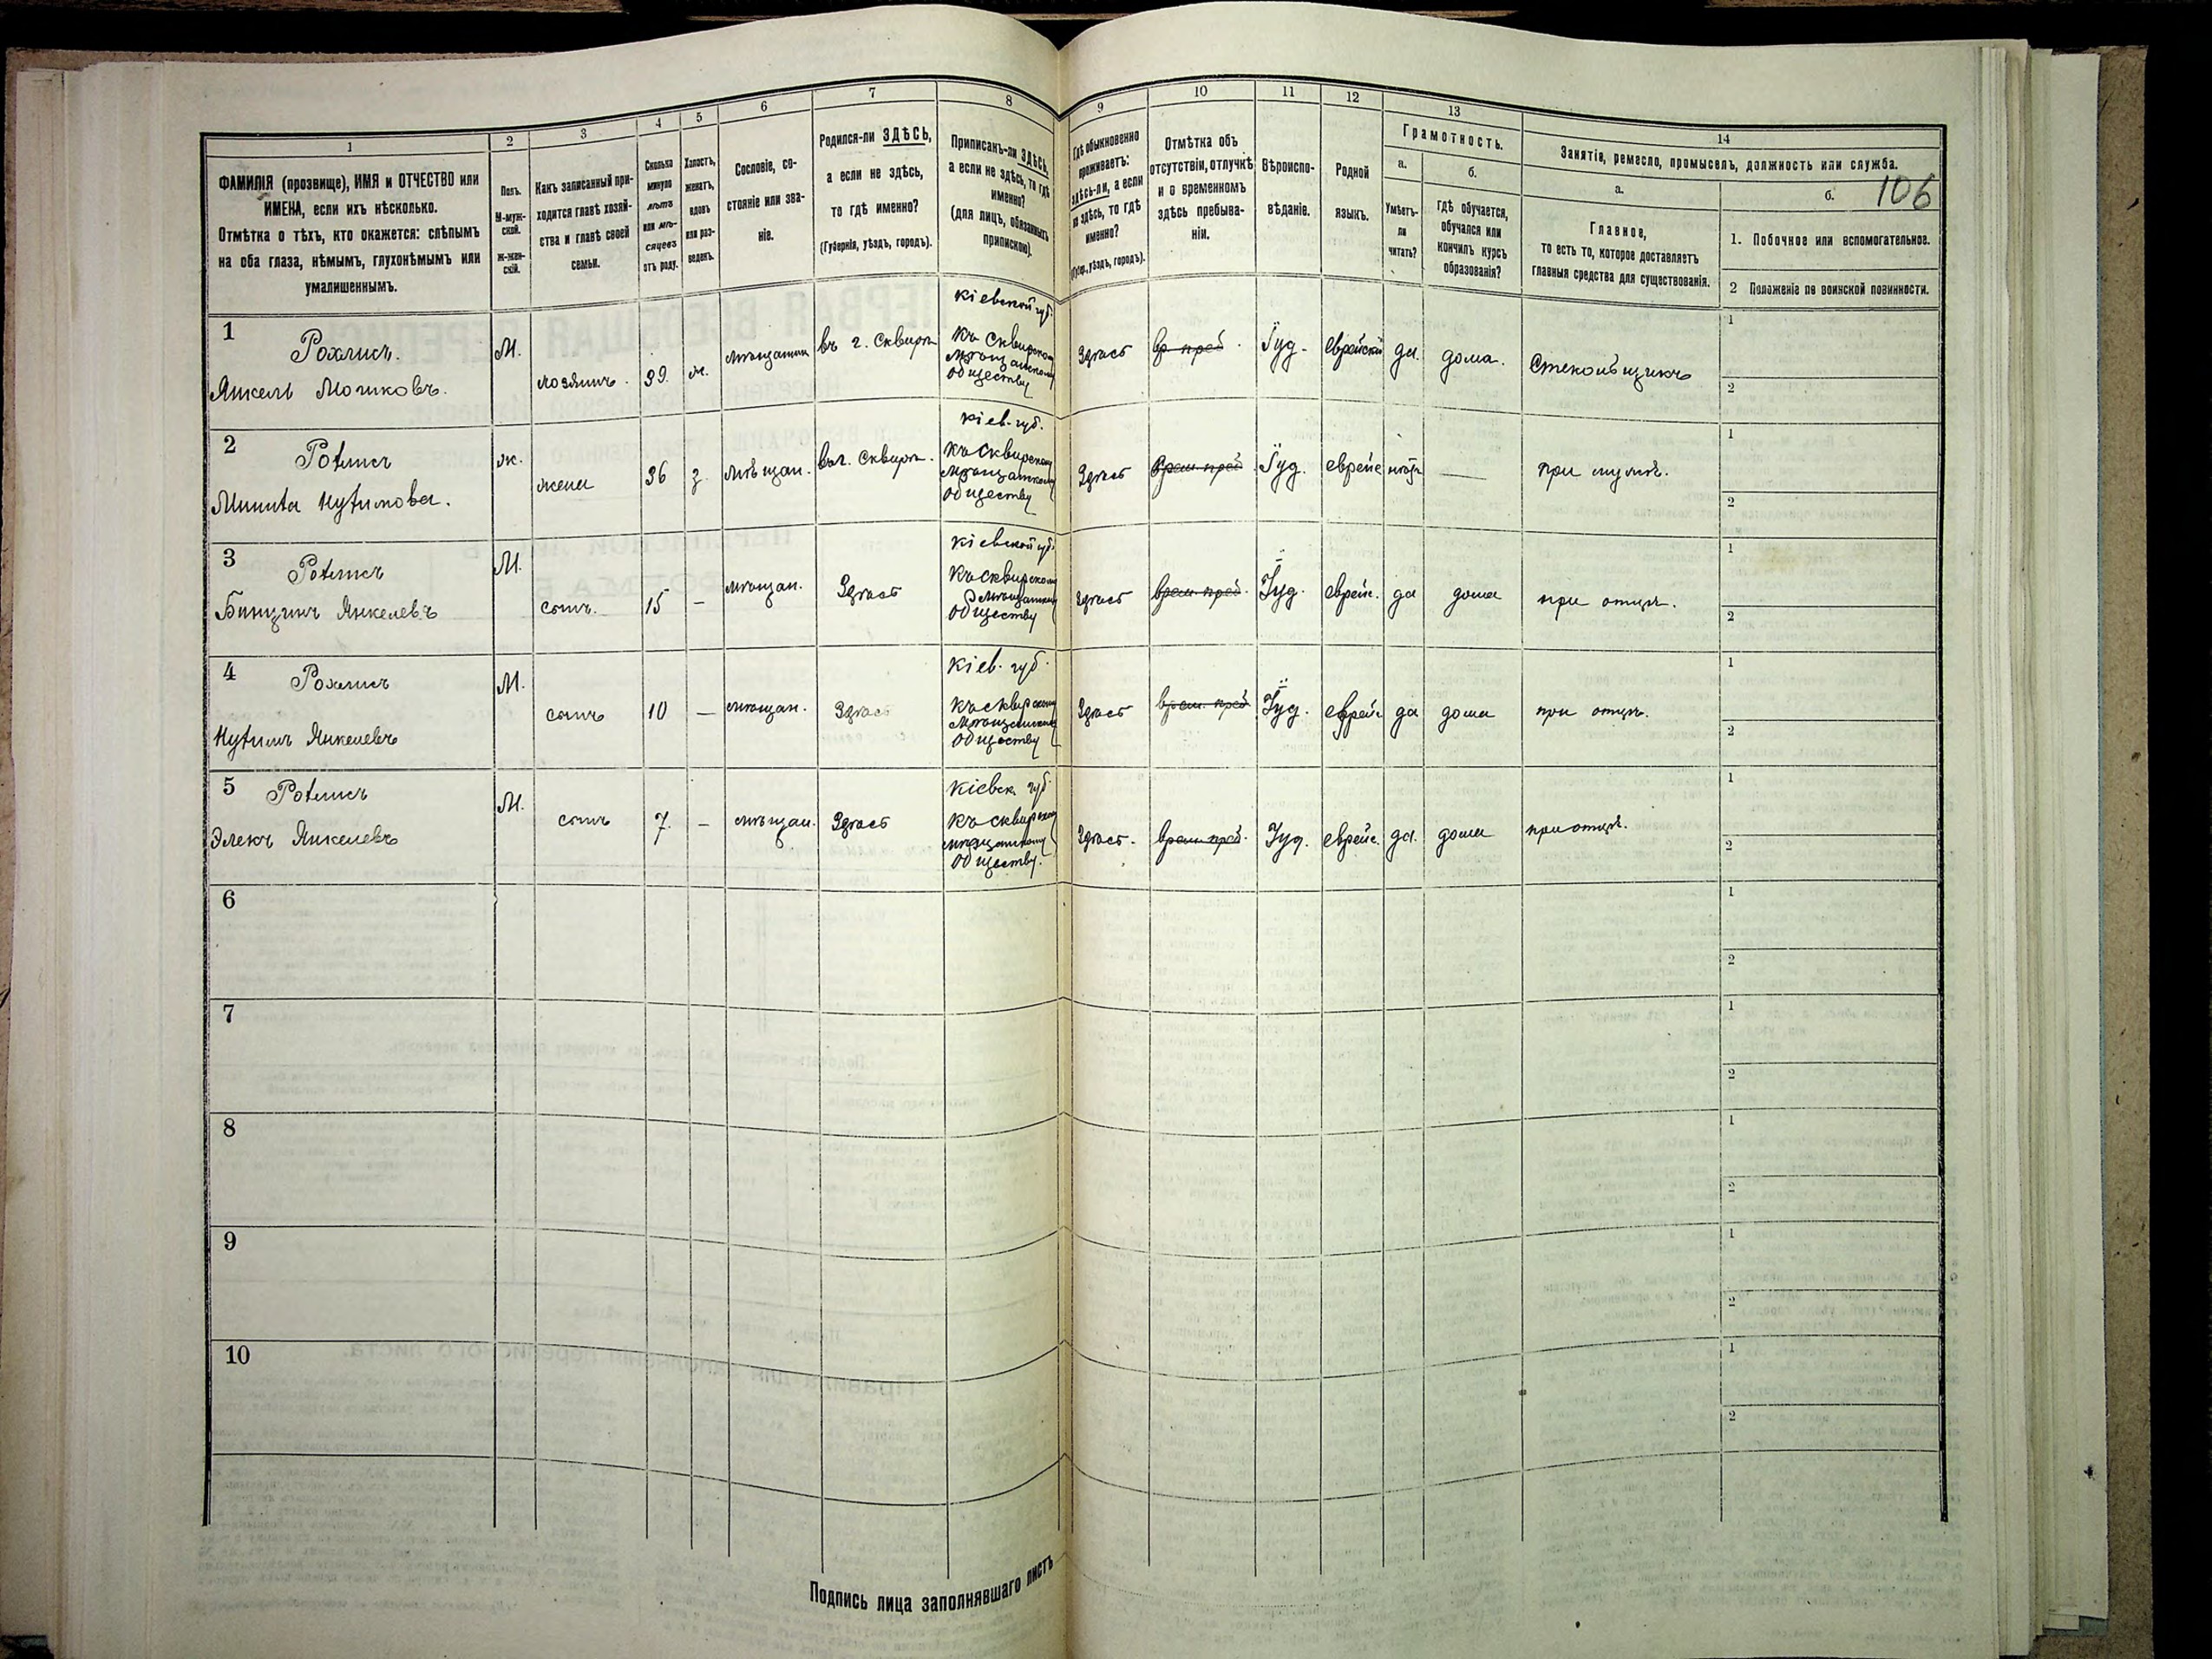 106
1
2
3
4
5
6
7
8
9
10
11
12
13
14
ФАМИЛІЯ (прозвище), ИМЯ и ОТЧЕСТВО или
ИМЕНА, если ихъ нѣсколько.
Отмѣтка о тѣхъ, кто окажется: слѣпымъ
на оба глаза, нѣмымъ, глухонѣмымъ или
умалишеннымъ.
Полъ.
М-муж-
ской.
Ж-жен-
скій.
Какъ записанный при-
ходится главѣ хозяй-
ства и главѣ своей
семьи.
Сколько
минуло
лѣтъ
или мѣ-
сяцевъ
отъ роду.
Холостъ,
женатъ,
вдовъ
или раз-
веденъ.
Сословіе, со-
стояніе или зва-
ніе.
Родился-ли ЗДѢСЬ,
а если не здѣсь,
то гдѣ именно?
(Губернія, уѣздъ, городъ).
Приписанъ-ли ЗДѢСЬ,
а если не здѣсь, то гдѣ
именно?
(для лицъ, обязанныхъ
припискою).
Гдѣ обыкновенно
проживаетъ:
здѣсь-ли, а если
не здѣсь, то гдѣ
именно?
(Губер., уѣздъ, городъ).
Отмѣтка объ
отсутствіи, отлучкѣ
и о временномъ
здѣсь пребыва-
ніи.
Вѣроиспо-
вѣданіе.
Родной
языкъ.
Грамотность.
а.
Умѣетъ-
ли
читать?
б.
гдѣ обучается,
обучался или
кончилъ курсъ
образованія?
Занятіе, ремесло, промыселъ, должность или служба.
а.
Главное,
то есть то, которое доставляетъ
главныя средства для существованія.
б.
1. Побочное или вспомогательное.
2 Положеніе по воинской повинности.
1
Рохлисъ.
Янкель Мошковъ.
М.
хозяинъ.
39.
ж.
мѣщанинъ
въ г. Сквирѣ
Кіевской губ.
Къ Сквирскому
Мѣщанскому
Обществу
Здѣсь
вр. преб.
Іуд.
еврейскій
да.
дома.
Стекольщикъ
1
2
2
Рохлисъ
Нухимова.
ж.
жена
36
з.
мѣщан.
въ г. Сквирѣ.
Кіев. губ.
Къ Сквирскому
Мѣщанскому
Обществу
Здѣсь
врем. преб.
Іуд.
еврейс
нѣтъ
—
при мужѣ.
1
2
3
Рохлисъ
Янкелевъ
М.
сынъ.
15
—
мѣщан.
Здѣсь
Кіевской губ.
Къ Сквирскому
Мѣщанскому
Обществу
Здѣсь
врем. преб.
Іуд.
еврейс.
да
дома
при отцѣ.
1
2
4
Рохлисъ
Нухимъ Янкелевъ
М.
сынъ
10
—
мѣщан.
Здѣсь
Кіев. губ.
Къ Сквирскому
Мѣщанскому
Обществу
Здѣсь
врем. преб.
Іуд.
еврейс
да
дома
при отцѣ.
1
2
5
Рохлисъ
Элекъ Янкелевъ
М.
сынъ
7.
—
мѣщан.
Здѣсь
Кіевск. губ.
Къ Сквирскому
мѣщанскому
Обществу.
Здѣсь.
врем. преб.
Іуд.
еврейс.
да.
дома
при отцѣ.
1
2
6
1
2
7
1
2
8
1
2
9
1
2
10
1
2
Подпись лица заполнявшаго листъ